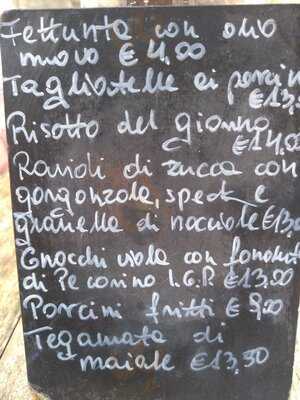 Fettunta con olio
nuovo € 4,00
Tagliatelle ai porcini
€ 13,
Risotto del giorno
€ 14,0
Ravioli di zucca con
gorgonzola, speck e
granella di nocciole € 13,
Gnocchi viola con fondut
di Pecorino I.G.P. € 13,00
Porcini fritti € 9,00
Tegamata di
maiale € 13,50